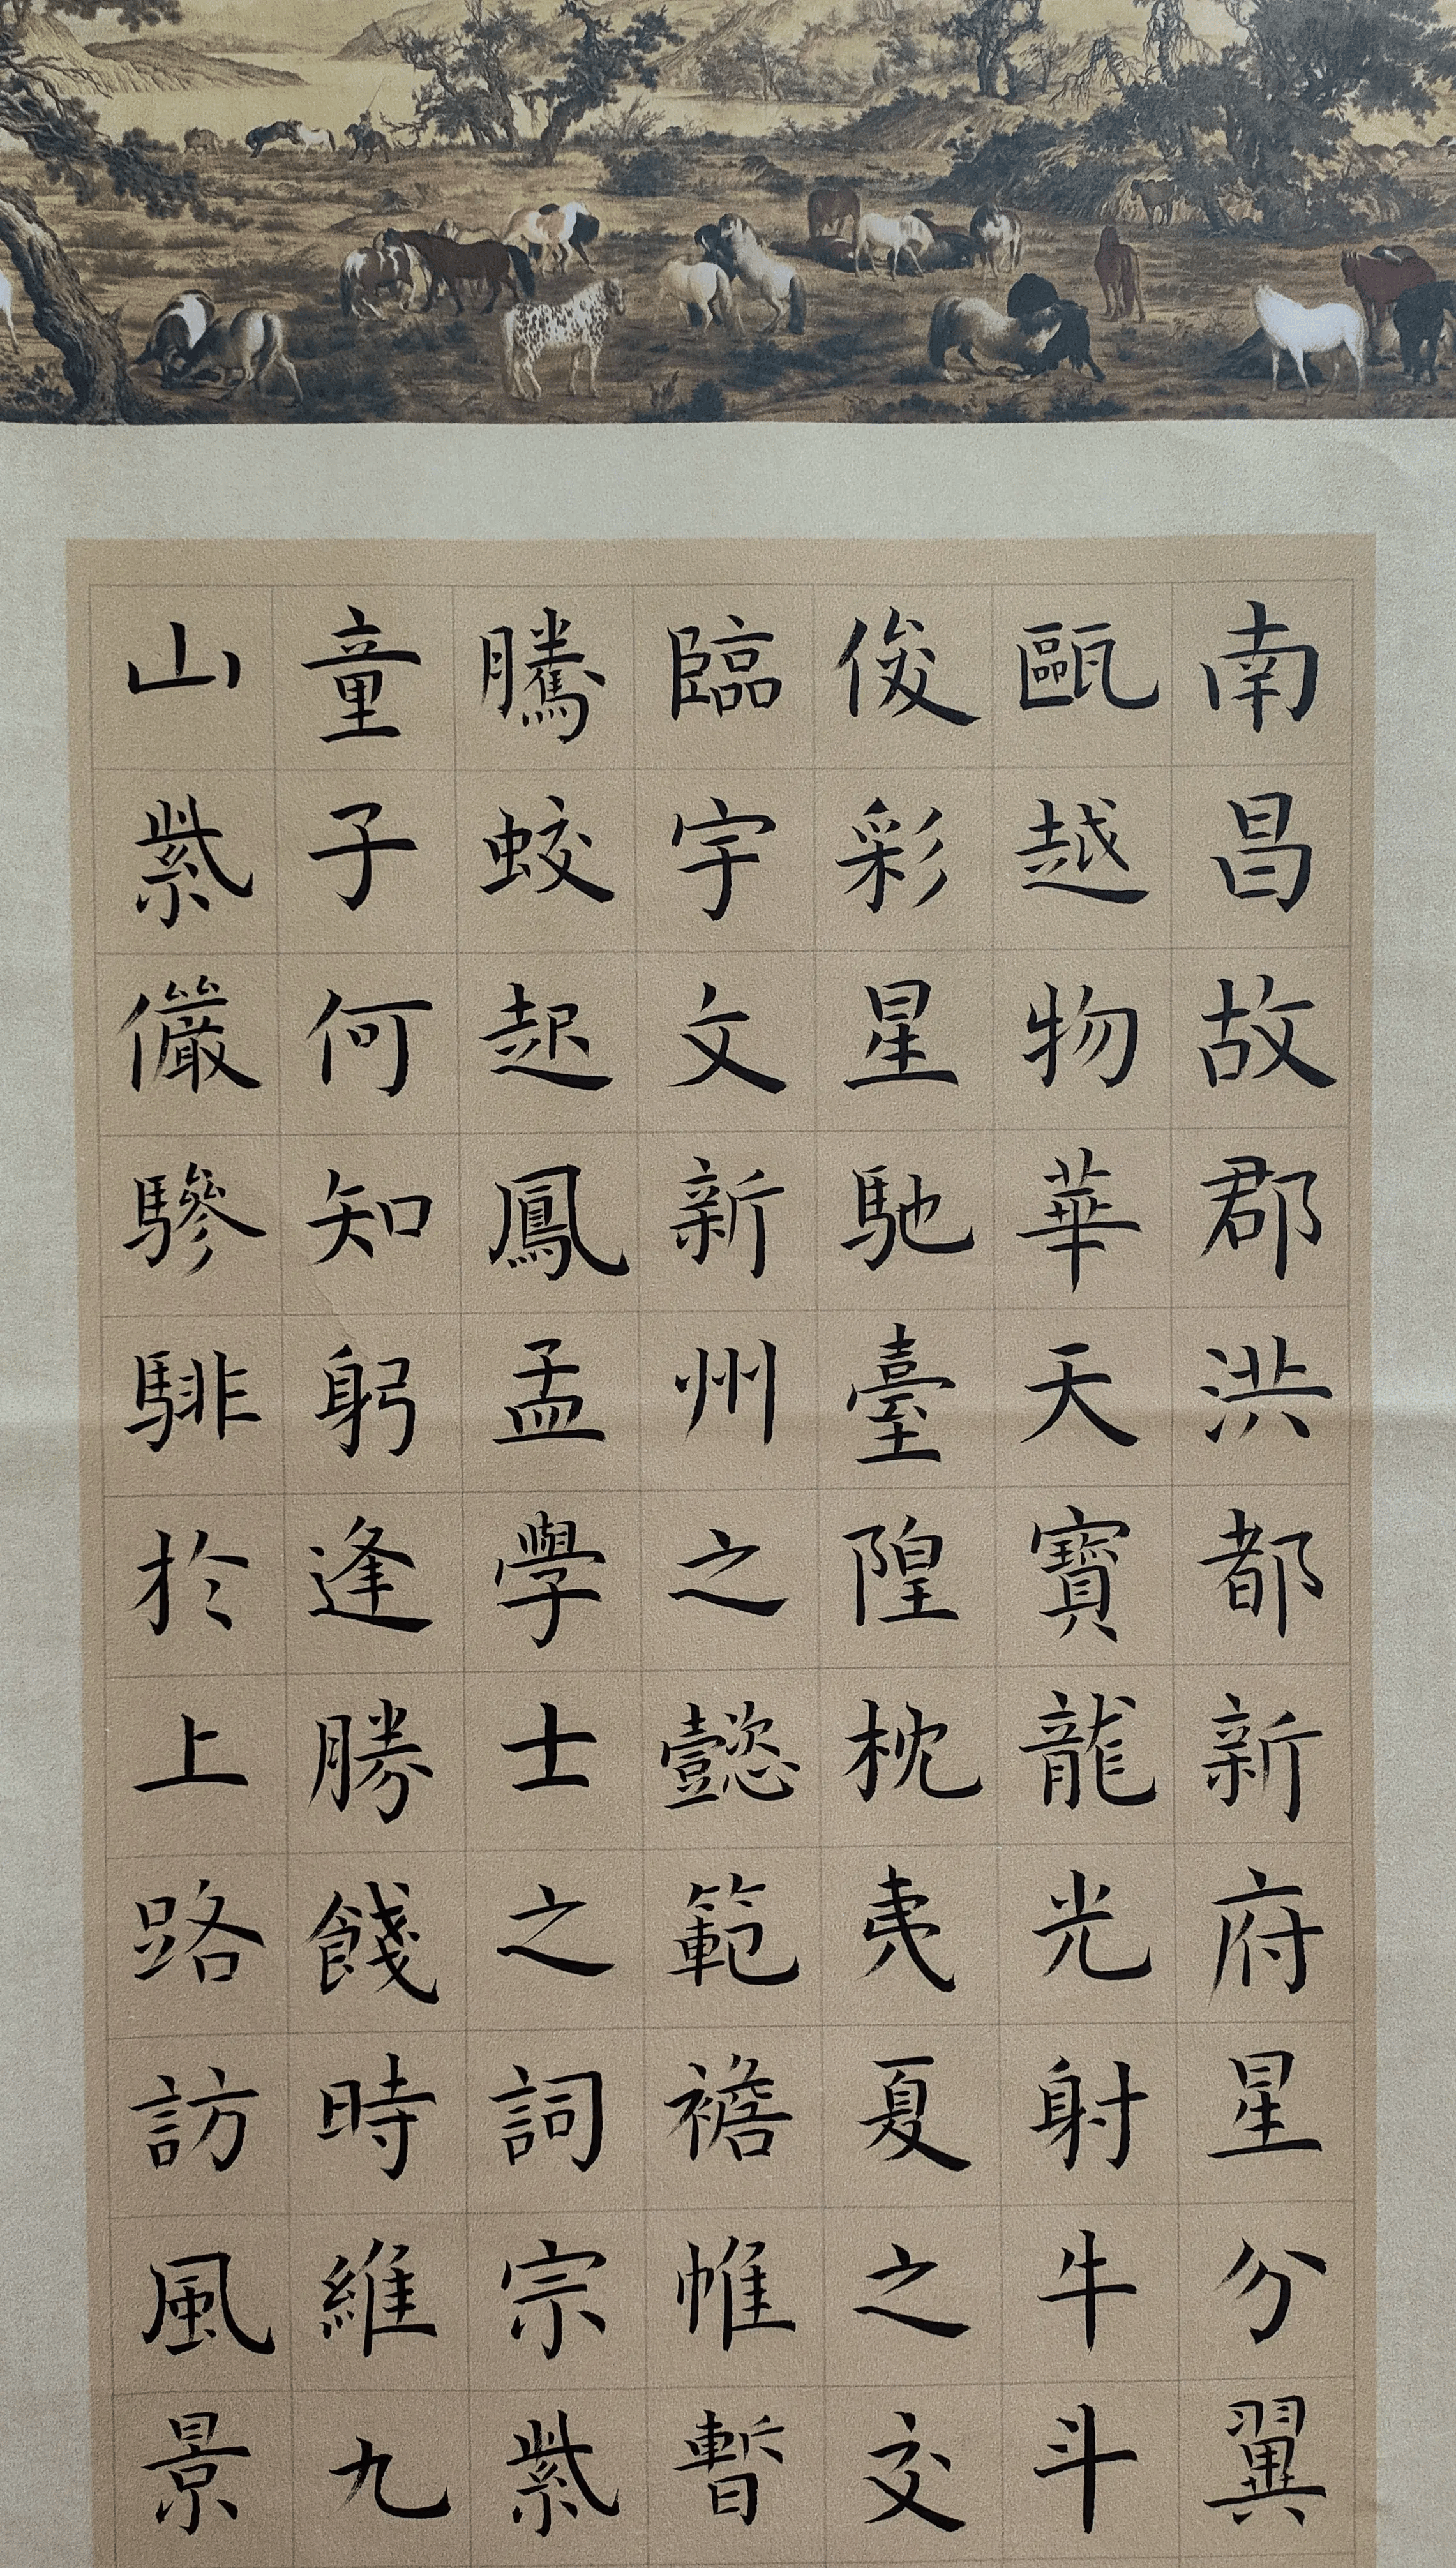 南昌故郡洪都新府星分翼
甌越物華天寶龍光射牛斗
俊彩星馳臺隍枕夷夏之交
臨宇文新州之懿範襜帷暫
騰蛟起鳳孟學士之詞宗紫
童子何知躬逢勝餞時維九
山紫儼驂騑於上路訪風景